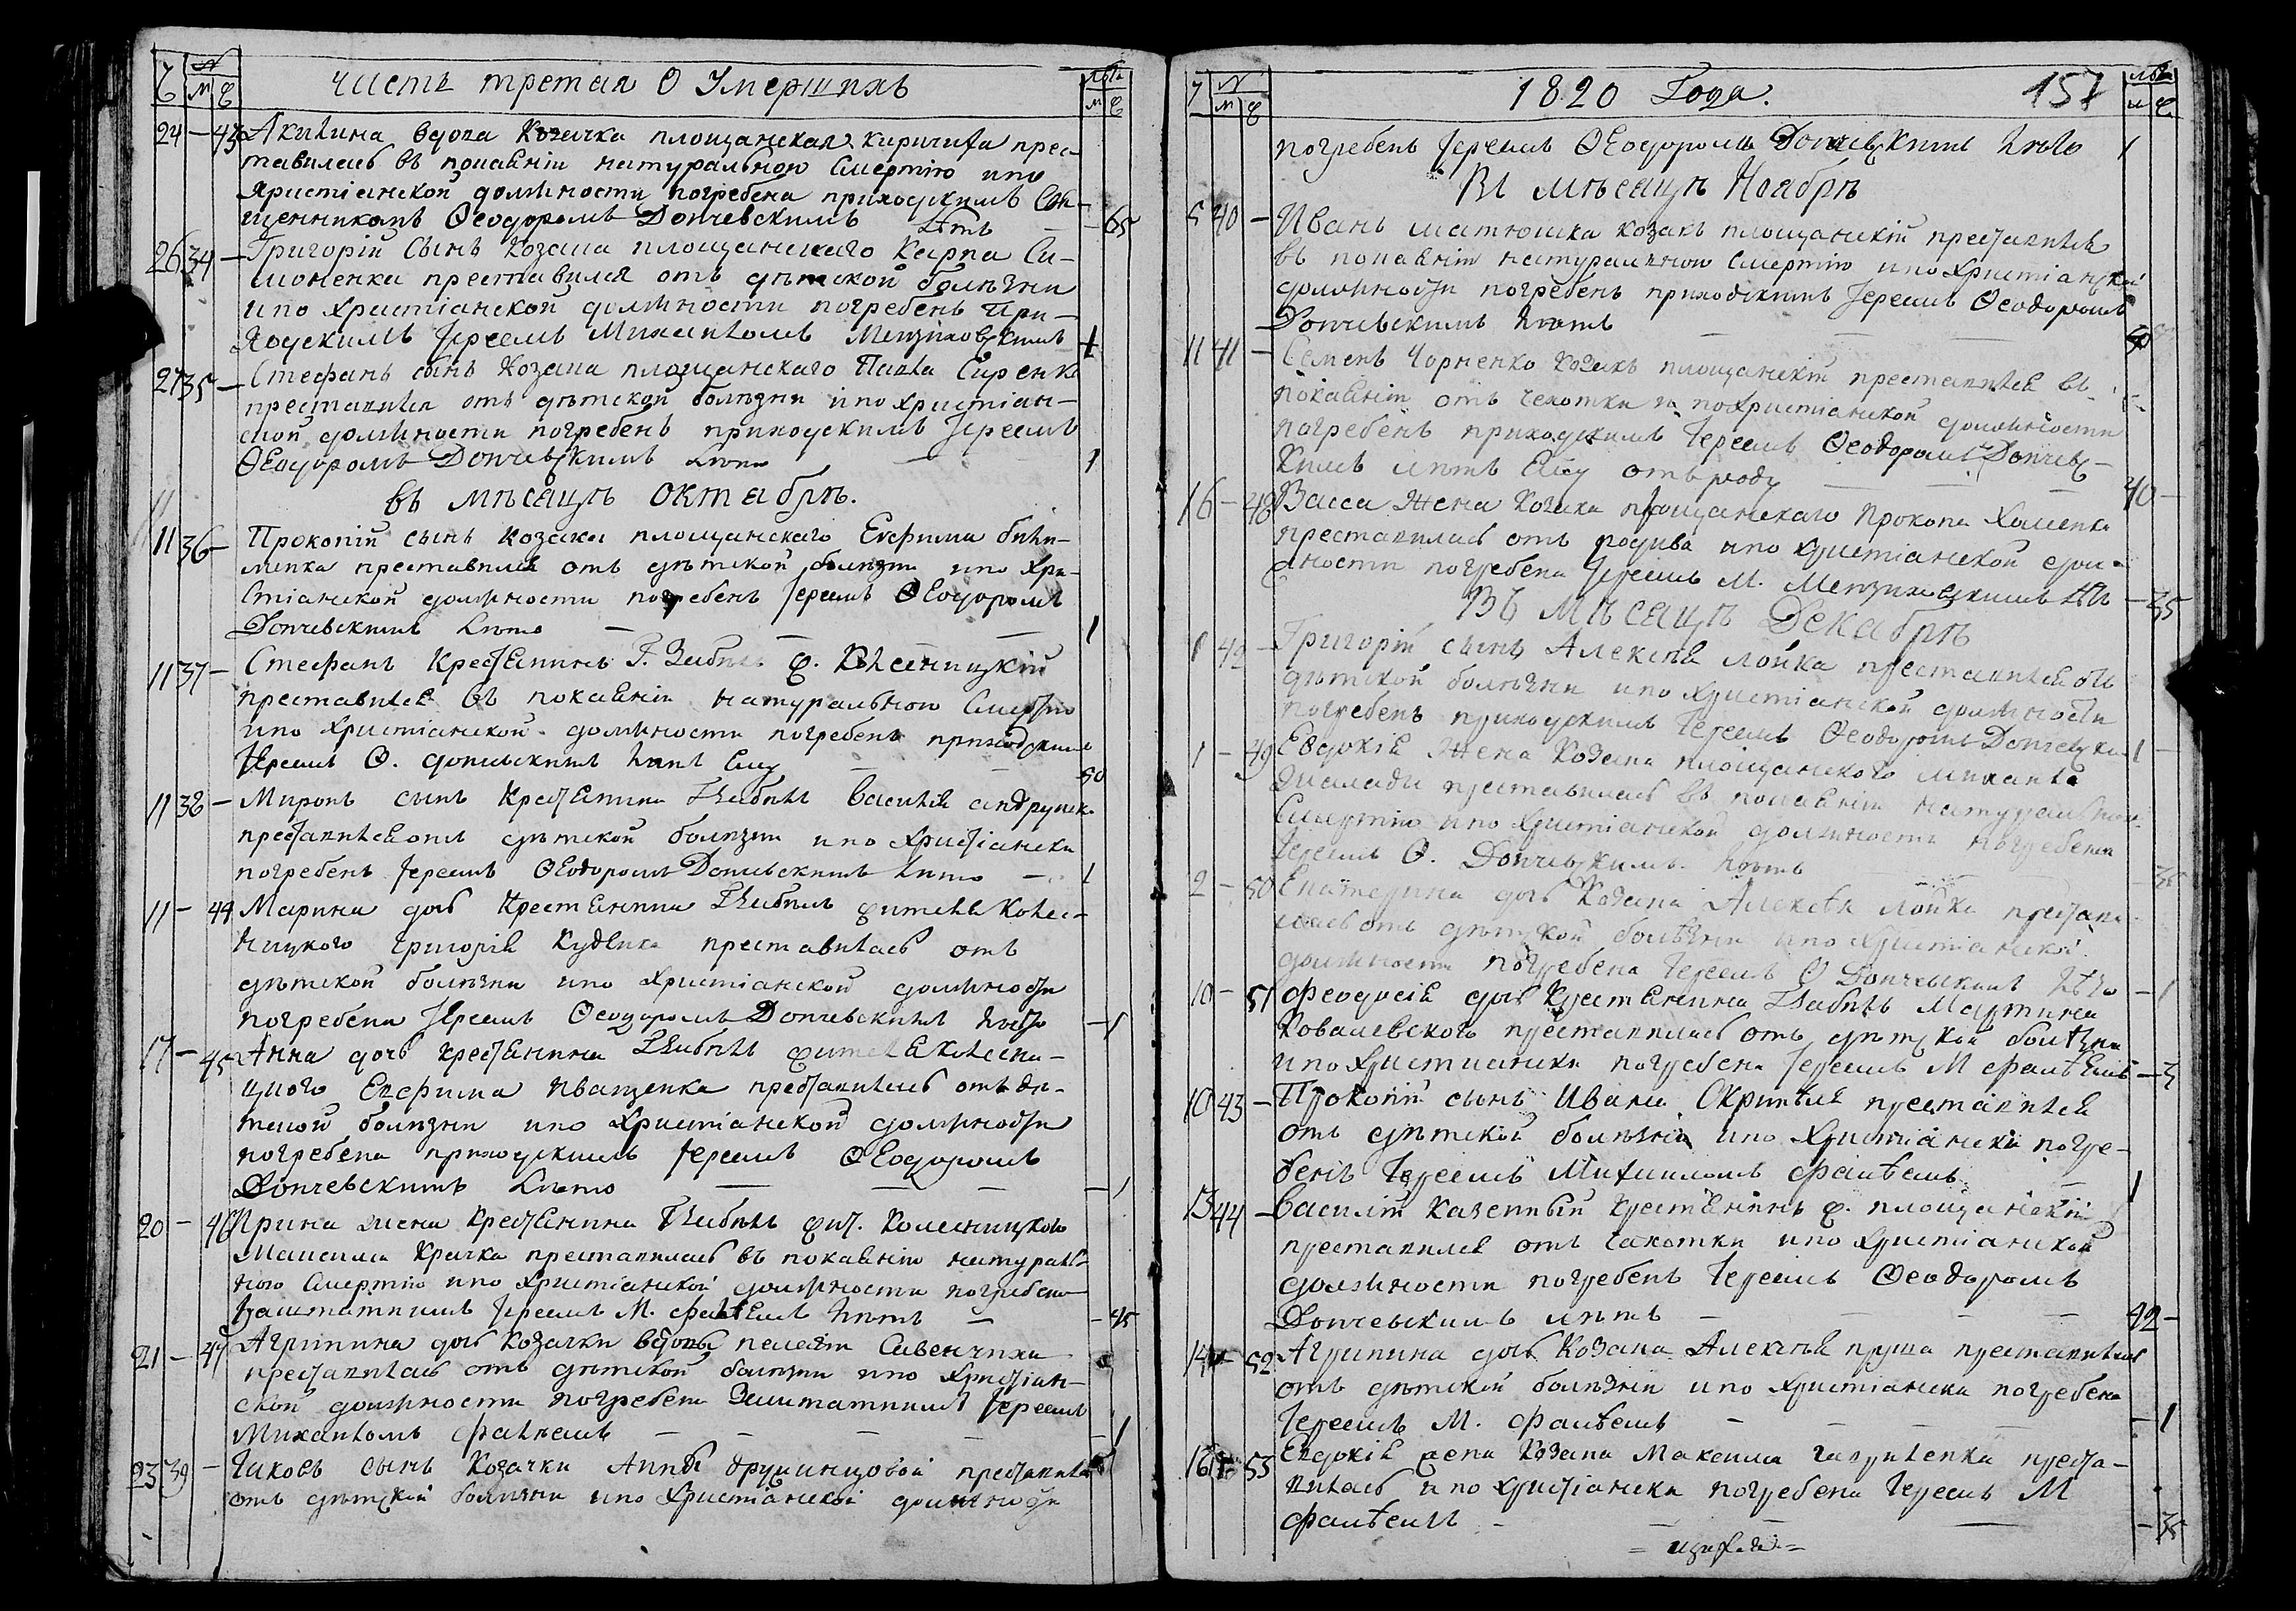 Часть третая О Умершихъ
№
м ж
лѣта
м ж
24 – 43 Акилина вдова Козачка площанская Киричиха прес-
тавилась въ покаянiи натуральною Смертiю ипо
Христiанской должности погребена приходскимъ Свя-
щенникомъ Ѳеодоромъ Дончевскимъ Лѣтъ – 65
26 34 – Григорiй Сынъ Козака площанскаго Карпа Си-
моненка преставился отъ дѣтской болѣзни
ипо Христiанской должности погребенъ При-
ходскимъ Iереемъ Михаиломъ 1
27 35 – Стефанъ сынъ Козака площанскаго Павла Сиренка
преставился отъ дѣтской болѣзни ипо христiан-
ской должности погребенъ приходскимъ Iереемъ
Ѳеодоромъ Дончевскимъ Лѣто – 1
въ мѣсяцѣ октабрѣ.
11 36 – Прокопiй сынъ козака площанскаго Евфима
преставился отъ дѣтской болѣзни ипо Хри-
стiанской должности погребенъ Iереемъ Ѳеодоромъ
Дончевскимъ Лѣто – – – 1
11 37 – Стефанъ Крестянинъ Г.
преставился въ покаянiи натуральною Смертiю
ипо Христiанской должности погребенъ приходскимъ
Iереемъ Ѳ. дончевскимъ лѣтъ Ему – – 50
11 38 – Миронъ сынъ Крестянина Василiя
преставился отъ дѣтской болѣзни ипо Христiански
погребенъ Iереемъ Ѳеодоромъ Дончевскимъ Лѣто – 1
11 – 44 Марина дочь Крестянина
Григорiя преставилась отъ
дѣтской болѣзни ипо Христiанской должности
погребена Iереемъ Ѳеодоромъ Дончевскимъ лѣто – 1
17 – 45 Анна дочь крестянина
Евфима Иващенка преставилась отъ дѣ-
тской болѣзни ипо Христiанской должности
погребена приходскимъ Iереемъ Ѳеодоромъ
Дончевскимъ Лѣто – – – – 1
20 – 46 Ирина жена Крестянина
Максима Крачка преставилась въ покаянiи натураль-
ною Смертiю ипо христiанской должности погребена
Заштатнимъ Iереемъ М. лѣтъ – – 45
21 – 47 Агрипина дочь козачки вдовы пелагiи Савенчихи
преставилась отъ дѣтской болѣзни ипо Христiан-
ской должности погребена Заштатнимъ Iереемъ
Михаиломъ – – – – – 1
23 39 – Iаковъ сынъ Козачки Анны преставился
отъ дѣтской болѣзни ипо Христiанской должности
№
м ж
1820 Года.
157
лѣта
м ж
погребенъ Iереемъ Ѳеодоромъ Дончевскимъ лѣто 1
Въ мѣсяцѣ Ноябрѣ
5 40 – Иванъ матюшка козакъ площанскiй преставился
въ покаянiи натуралною Смертiю ипо Христiанской
должности погребенъ приходскимъ Iереемъ Ѳеодоромъ
Дончевскимъ лѣтъ – – –
11 41 – Семенъ Чорненко козакъ площанскiй преставился въ
покаянiи отъ чахотки и похристiанской должности
погребенъ приходскимъ Iереемъ Ѳеодоромъ Дончевс-
кимъ лѣтъ Ему отъ роду – – 40 –
16 – 48 Васса жена Козака площанскаго Прокопа Хоменка
преставилась отъ родива ипо христiанской дол-
жности погребена Iереемъ М. – 35
Въ Мѣсяцѣ Декабрѣ
1 42 – Григорiй сынъ Алексѣя лойка преставился отъ
дѣтской болѣзни ипо Христiанской должности
погребенъ приходскимъ Iереемъ Ѳеодоромъ Дончевски- 1 –
1 – 49 Евдокiя жена Козака площанского михаила
преставилась въ покаянiи натуральною
Смертiю ипо Христiанской должности погребена
Iереемъ Ѳ. Дончевскимъ лѣтъ – 35
2 – 50 Екатерина дочь Козака Алексѣя лойка престави-
лась отъ дѣтской болѣзни ипо Христiанской
должности погребена Iереемъ Ѳ Дончевскимъ лѣто – 1
10 – 51 Феодосiя дочь Крестянина Мартина
Ковалевского преставилась отъ дѣтской болѣзни
ипо Христиански погребена Iереемъ М – 3
10 43 – Прокопiй сынъ Ивана преставился
отъ дѣтской болѣзни ипо Христiански погре-
бенъ Iереемъ Михаиломъ – 1
13 44 – Василiй Казенный Крестянинъ площанскiй
преставился отъ чахотки ипо Христiанской
должности погребенъ Iереемъ Ѳеодоромъ
Дончевскимъ лѣтъ – – – – 42 –
14 – 52 Агрипина дочь Козака Алексѣя преставилась
отъ дѣтской болѣзни ипо Христiански погребена
Iереемъ М. – – – – 1
16 – 53 Евдокiя жена Козака Максима преста-
вилась ипо христiански погребена Iереемъ М
– – – – 35